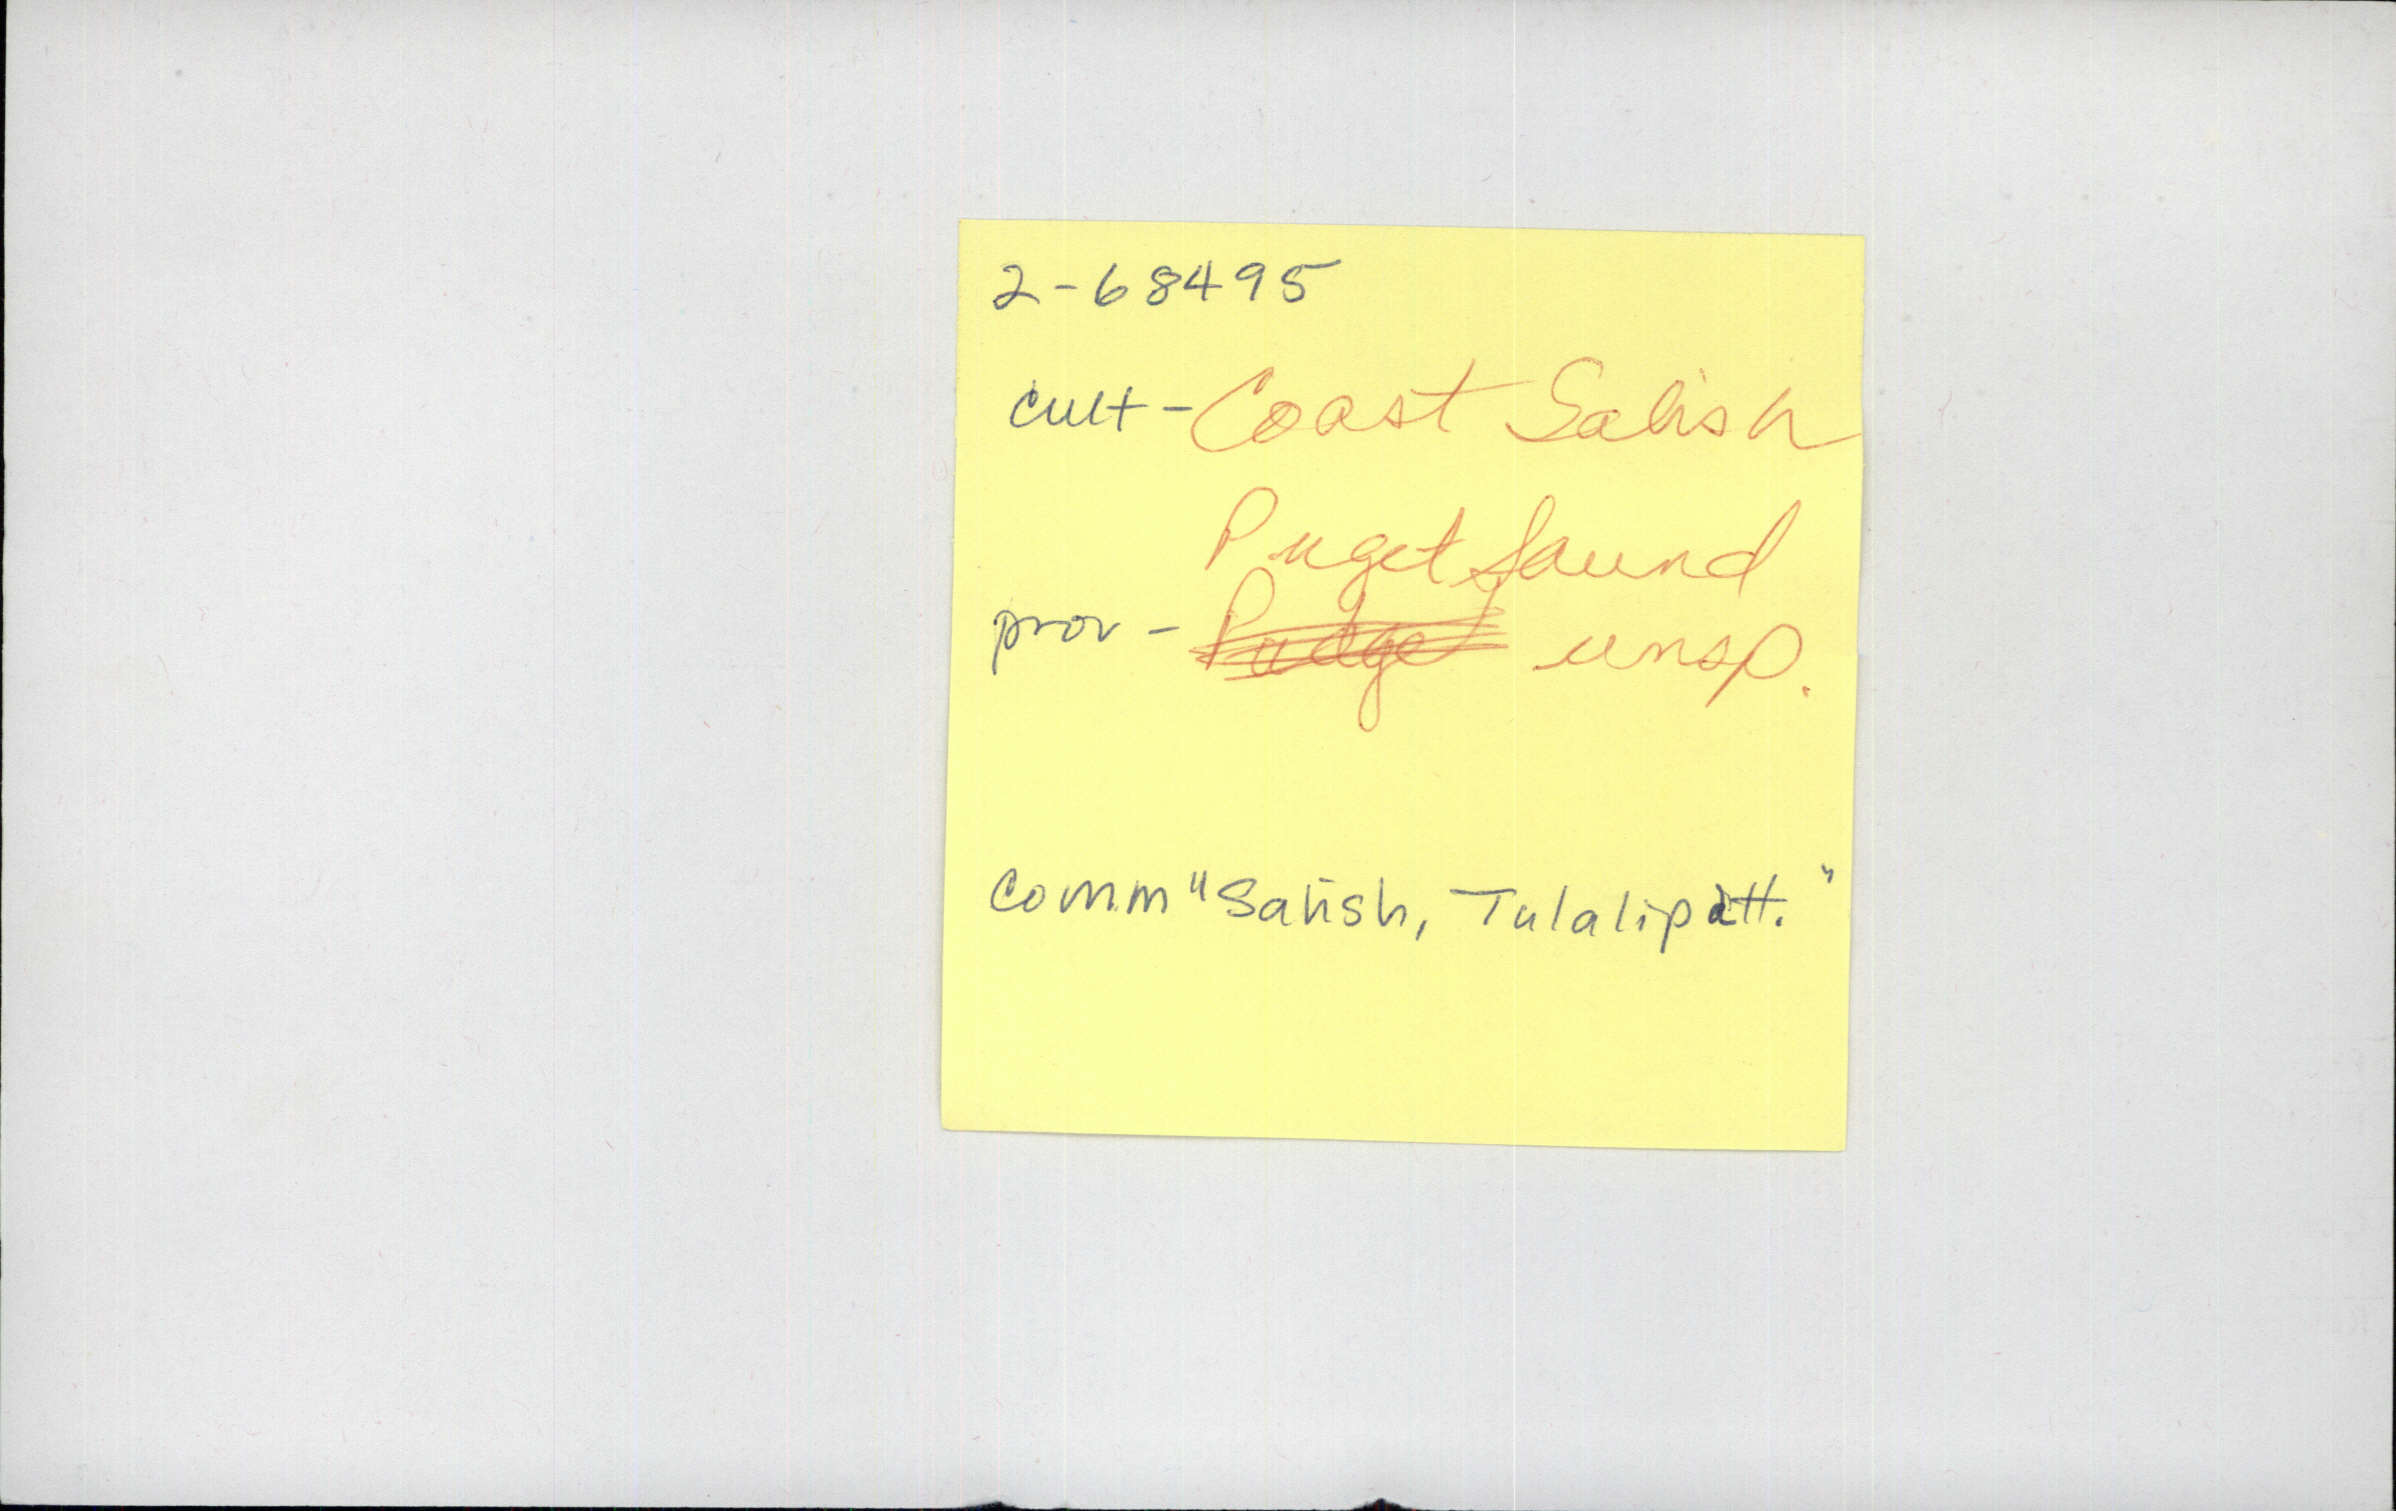 2-68495
cult - Coast Salish
Puget Sound
prov - Pudge unsp.
comm "Salish, Tulalip att."